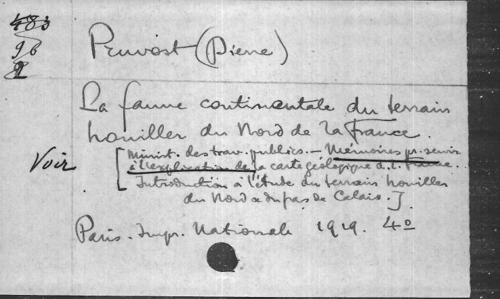 483
96
2
Pruvost (Pierre)
La faune continentale du terrain
houiller du Nord de la France.
Voir [Minist. des trav. publics. - Mémoires pr. servir
à l'explication de la carte géologique d. l. France...
Introduction à l'étude du terrain houiller
du Nord & du pas de Calais.]
Paris. Impr. Nationale 1919. 4o